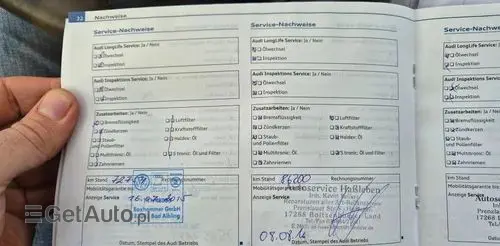 32 Nachweise
Service-Nachweise
Audi LongLife Service: Ja / Nein
Ölwechsel
Inspektion
Audi Inspektions Service: Ja / Nein
Ölwechsel
Inspektion
Zusatzarbeiten: Ja / Nein
Bremsflüssigkeit
Luftfilter
Zündkerzen
Kraftstofffilter
Staub- und Pollenfilter
Haldex: Öl
Multitronic: Öl
S tronic: Öl und Filter
Zahnriemen
km Stand
Rechnungsnummer
Mobilitätsgarantie bis
Anzeige Service
Seehammer GmbH
Bad Aibling
Datum, Stempel des Audi Betriebs
Service-Nachweise
Audi LongLife Service: Ja / Nein
Ölwechsel
Inspektion
Audi Inspektions Service: Ja / Nein
Ölwechsel
Inspektion
Zusatzarbeiten: Ja / Nein
Bremsflüssigkeit
Luftfilter
Zündkerzen
Kraftstofffilter
Staub- und Pollenfilter
Haldex: Öl
Multitronic: Öl
S tronic: Öl und Filter
Zahnriemen
km Stand
86200
Rechnungsnummer
Mobilitätsgarantie
Anzeige Service
Autoservice Haßleben
17268 Boitzenburger Land
08.09.16
Datum, Stempel des Audi Betriebs
Service-Nachweise
Audi LongLife Service: Ja
Ölwechsel
Inspektion
Audi Inspektions Service
Ölwechsel
Inspektion
Zusatzarbeiten: Ja / Nein
Bremsflüssigkeit
Zündkerzen
Staub- und Pollenfilter
Multitronic: Öl
Zahnriemen
km Stand
Autoservice
17268
Datum, Stempel
GetAuto.pl